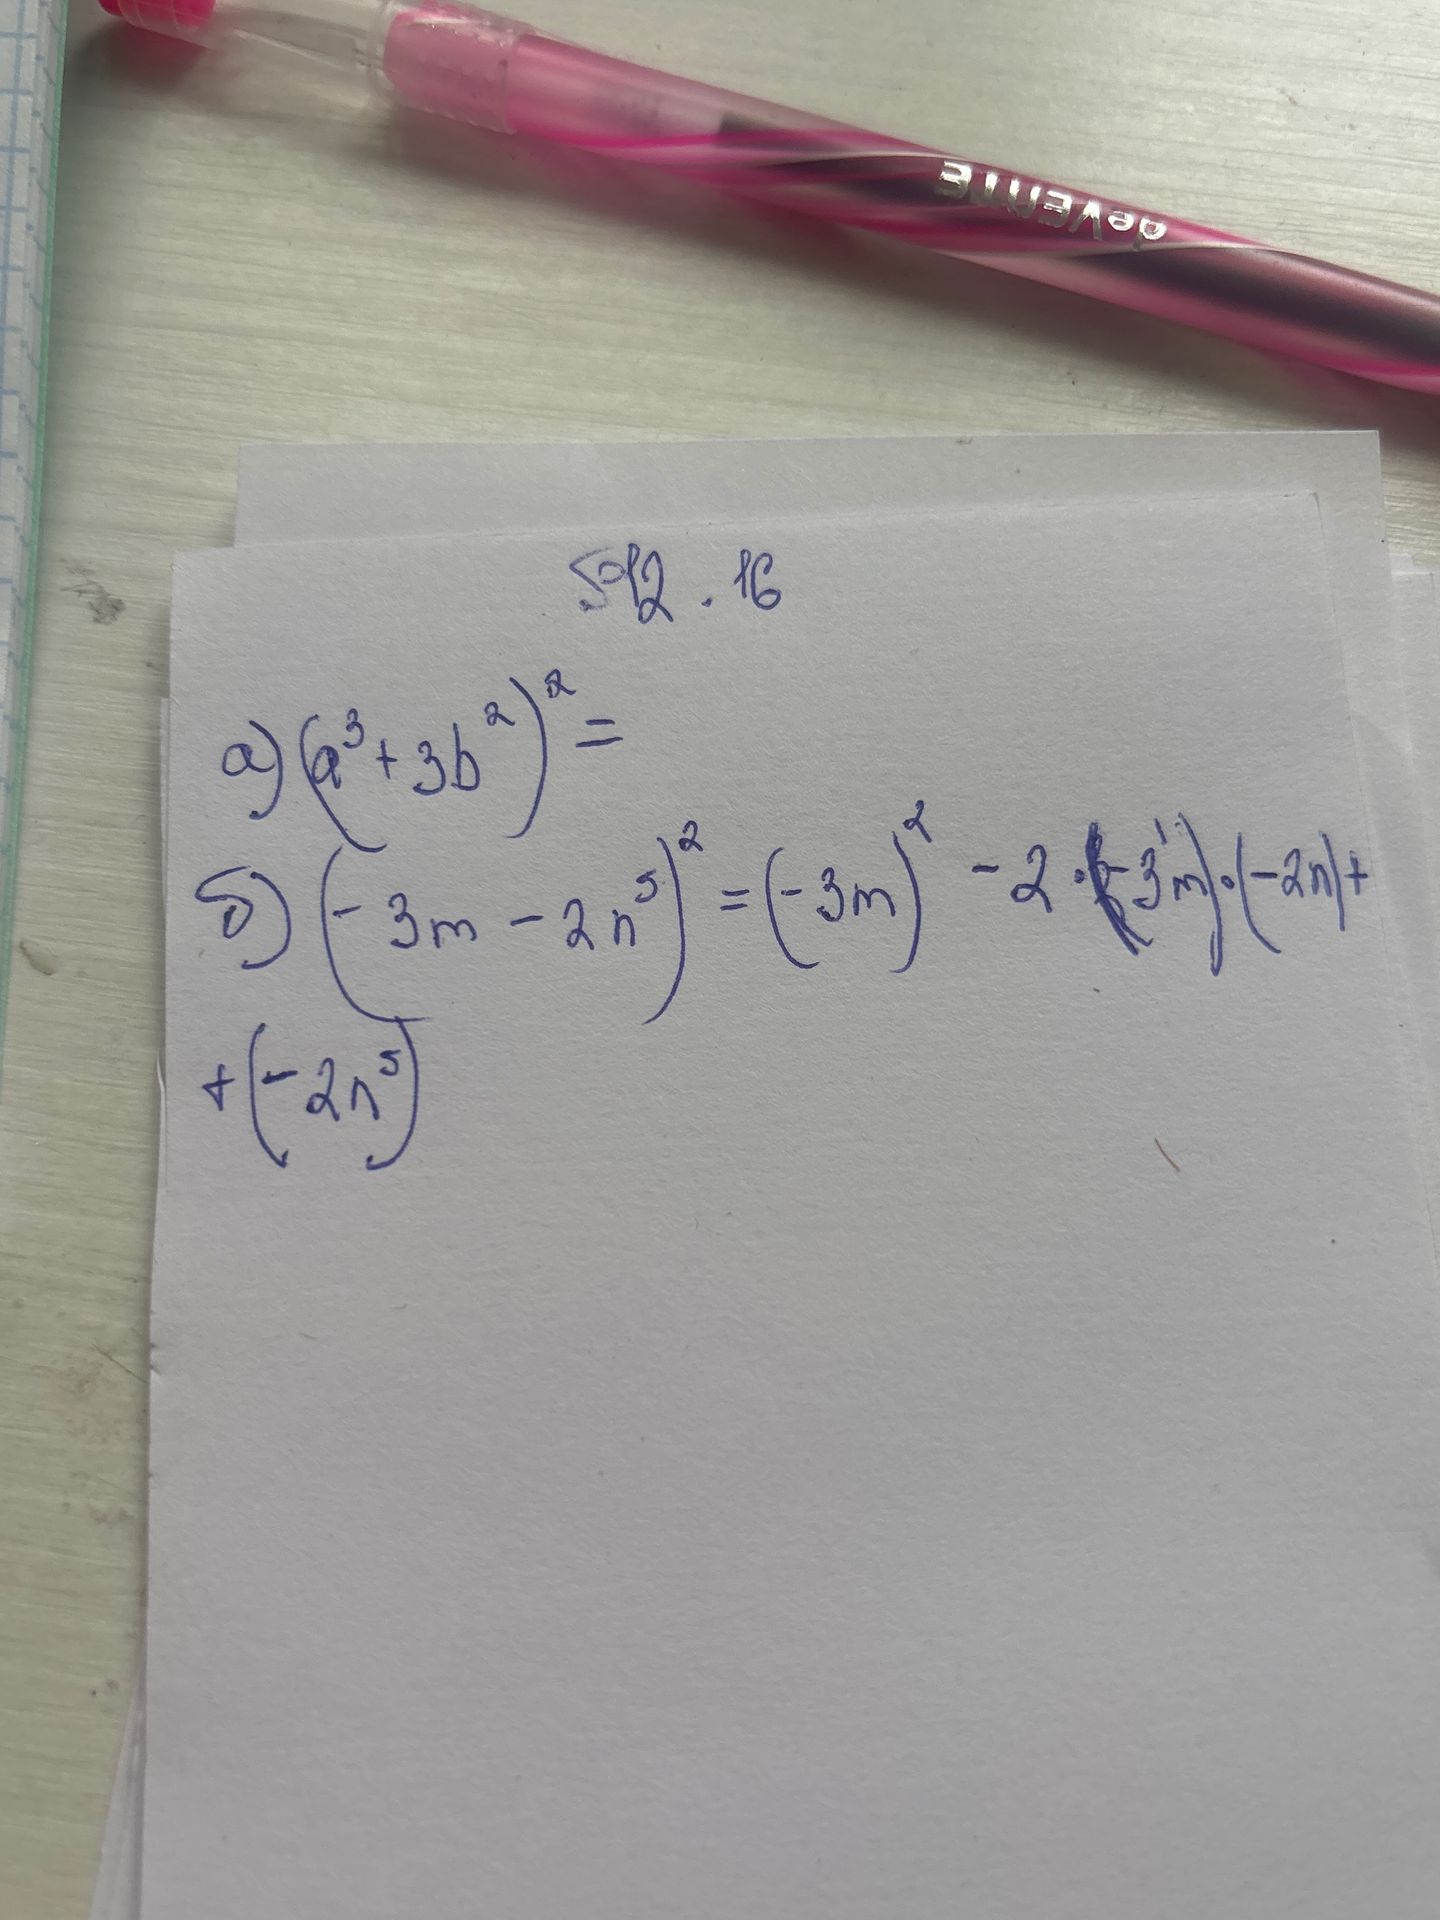 deVENTE
а) (a³ + 3b²)² =
б) (-3m - 2n⁵)² = (-3m)² - 2 · (-3m) · (-2n) +
+ (-2n⁵)